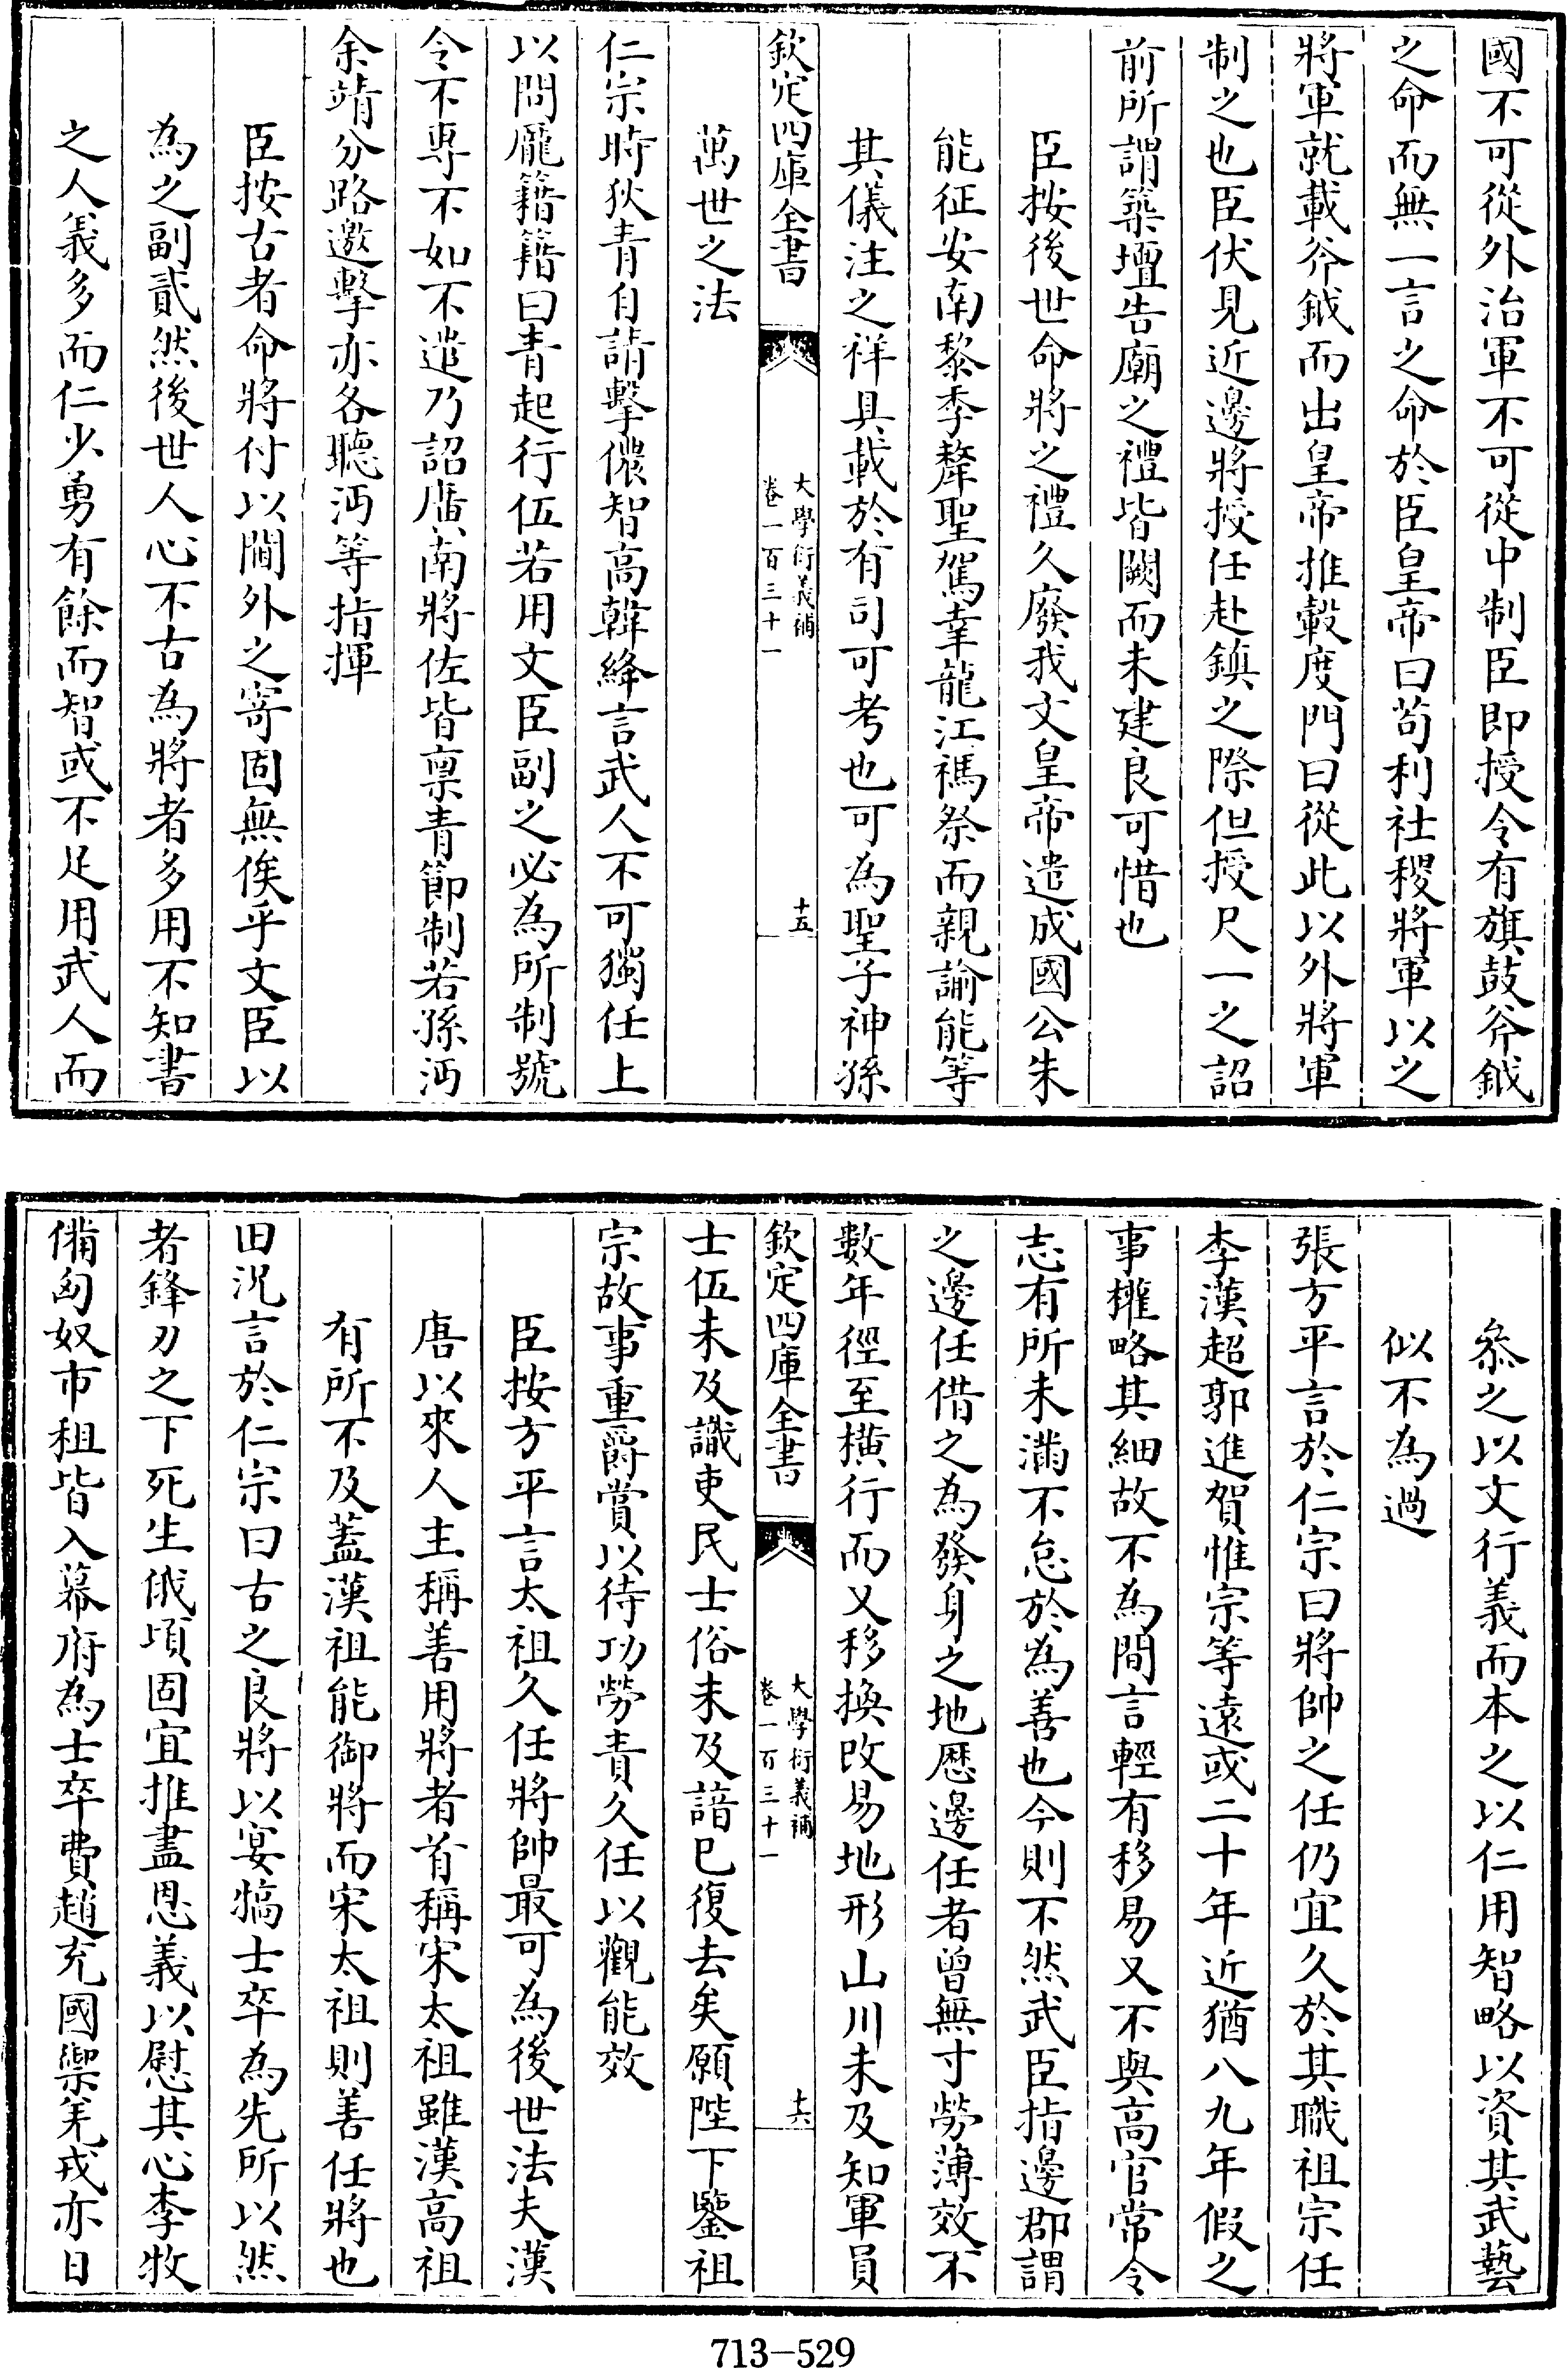 國不可從外治軍不可從中制臣即授令有旗鼓斧鉞
之命而無一言之命於臣皇帝曰茍利社稷將軍以之
將軍就載斧鉞而出皇帝推轂度門曰從此以外將軍
制之也臣伏見近邊將授任赴鎮之際但授尺一之詔
前所謂築壇告廟之禮皆闕而未建良可惜也
臣按後世命將之禮久廢我文皇帝遣成國公朱
能征安南黎季犛聖駕幸龍江禡祭而親諭能等
其儀注之祥具載於有司可考也可為聖子神孫
欽定四庫全書
大學衍義補
卷一百三十一
十五
萬世之法
仁宗時狄青自請擊儂智高韓絳言武人不可獨任上
以問龐籍籍曰青起行伍若用文臣副之必為所制號
令不專不如不遣乃詔廣南將佐皆稟青節制若孫沔
余靖分路邀擊亦各聽沔等指揮
臣按古者命將付以閫外之寄固無俟乎文臣以
為之副貳然後世人心不古為將者多用不知書
之人義多而仁少勇有餘而智或不足用武人而
叅之以文行義而本之以仁用智略以資其武藝
似不為過
張方平言於仁宗曰將帥之任仍宜久於其職祖宗任
李漢超郭進賀惟宗等遠或二十年近猶八九年假之
事權略其細故不為間言輕有移易又不與高官常令
志有所未滿不怠於為善也今則不然武臣指邊郡謂
之邊任借之為發身之地歷邊任者曾無寸勞薄效不
數年徑至橫行而又移換改易地形山川未及知軍員
欽定四庫全書
大學衍義補
卷一百三十一
十六
士伍未及識吏民士俗未及諳已復去矣願陛下鑒祖
宗故事重爵賞以待功勞責久任以觀能效
臣按方平言太祖久任將帥最可為後世法夫漢
唐以來人主稱善用將者首稱宋太祖雖漢高祖
有所不及葢漢祖能御將而宋太祖則善任將也
田況言於仁宗曰古之良將以宴犒士卒為先所以然
者鋒刃之下死生俄頃固宜推盡恩義以慰其心李牧
備匈奴市租皆入幕府為士卒費趙充國禦羌戎亦日
713-529